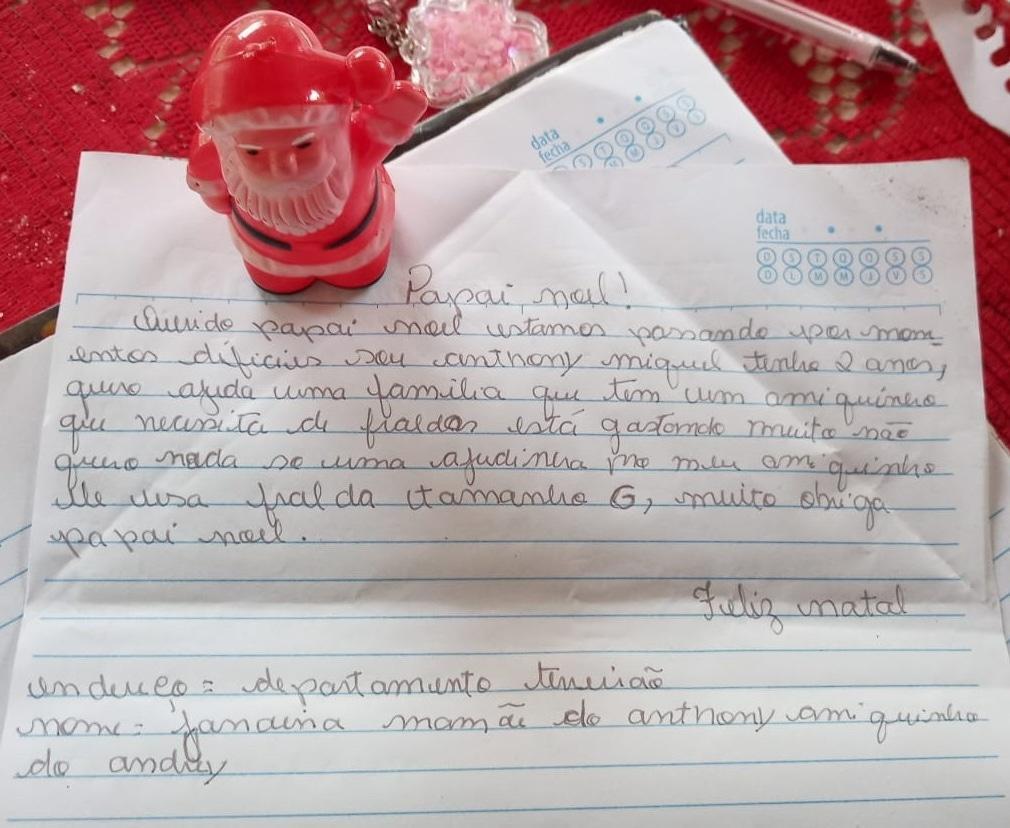 data
fecha
S T Q Q S S
data
fecha
D S T Q Q S S
D L M M J V S
Papai noel!
Querido papai noel estamos passando por mom
entos dificies sou anthony miguel tenho 2 anos,
quero ajuda uma familia que tem um amiquinho
que necessita de fraldas está gastando muito não
quero nada so uma ajudinha pro meu amiquinho
ele usa fralda tamanho G, muito obriga
papai noel.
Feliz natal
endereço = departamento
nome = Janaina mamãe do anthony amiquinho
do andrey